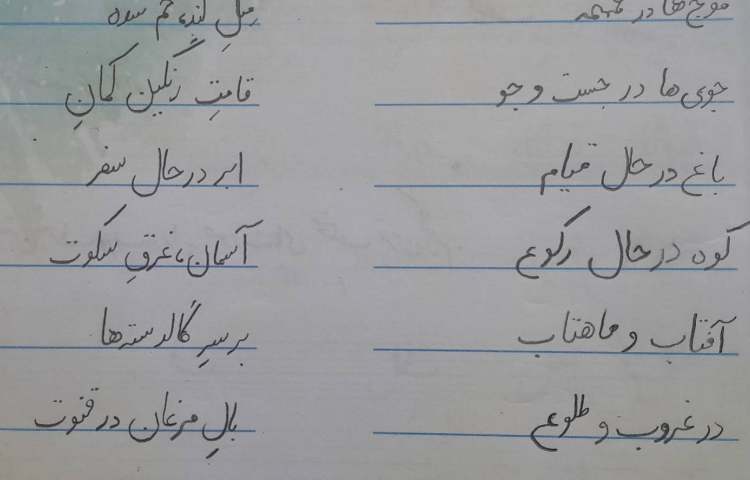 موج‌ها در همهمه مثلِ گنبد، خم شده
جوی‌ها در جست و جو قامتِ رنگین کمانِ
باغ در حال قیام ابر در حال سفر
کوه در حال رکوع آسمان، غرقِ سکوت
آفتاب و ماهتاب بر سرِ گلدسته‌ها
در غروب و طلوع بالِ مرغان در قنوت